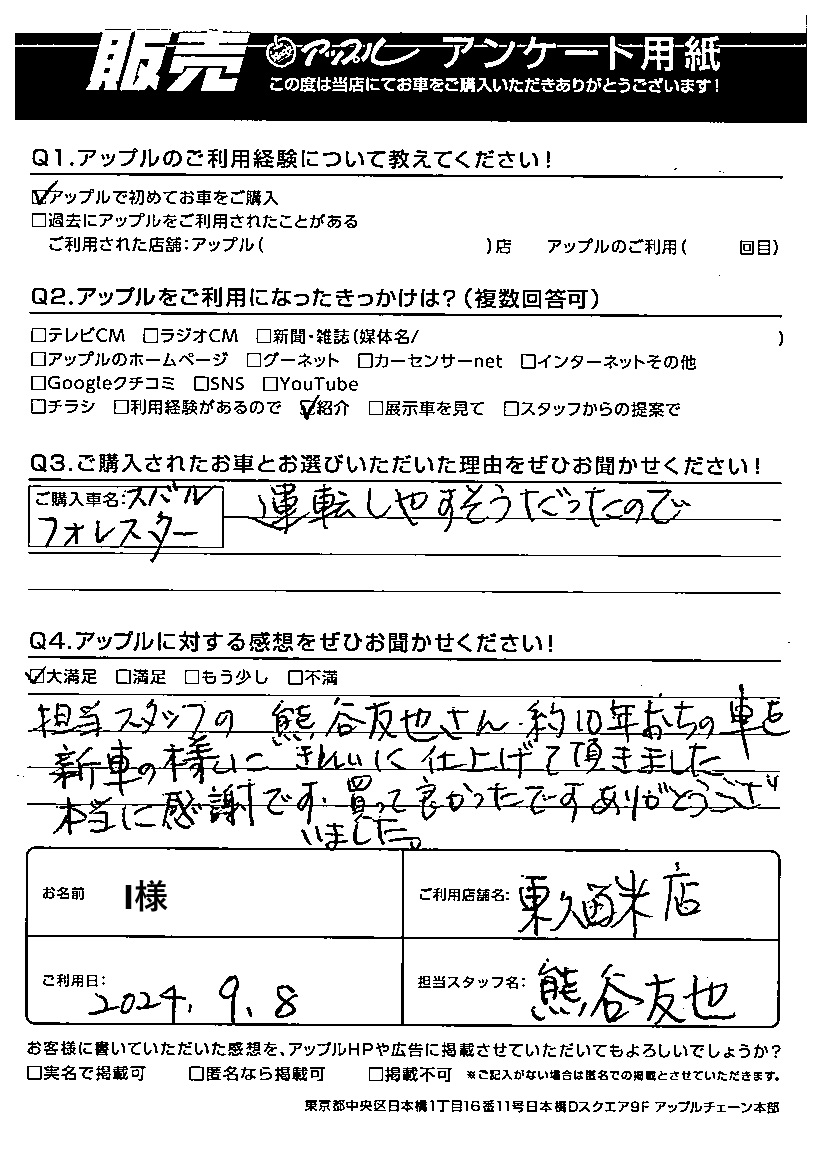 販売 アップル アンケート用紙
この度は当店にてお車をご購入いただきありがとうございます!
Q1.アップルのご利用経験について教えてください!
☑アップルで初めてお車をご購入
□過去にアップルをご利用されたことがある
ご利用された店舗:アップル( )店 アップルのご利用( 回目)
Q2.アップルをご利用になったきっかけは?(複数回答可)
□テレビCM □ラジオCM □新聞・雑誌(媒体名/ )
□アップルのホームページ □グーネット □カーセンサーnet □インターネットその他
□Googleクチコミ □SNS □YouTube
□チラシ □利用経験があるので ☑紹介 □展示車を見て □スタッフからの提案で
Q3.ご購入されたお車とお選びいただいた理由をぜひお聞かせください!
ご購入車名:スバル
フォレスター
運転しやすそうだったので
Q4.アップルに対する感想をぜひお聞かせください!
☑大満足 □満足 □もう少し □不満
担当スタッフの 熊谷友也さん.約10年おちの車を
新車の様いに きれいに 仕上げて頂きました
本当に感謝です.買って良かったですありがとうござ
いました。
お名前 I様
ご利用店舗名:東久留米店
ご利用日: 2024.9.8
担当スタッフ名:熊谷友也
お客様に書いていただいた感想を、アップルHPや広告に掲載させていただいてもよろしいでしょうか?
□実名で掲載可 □匿名なら掲載可 □掲載不可 ※ご記入がない場合は匿名での掲載とさせていただきます。
東京都中央区日本橋1丁目16番11号日本橋Dスクエア9F アップルチェーン本部